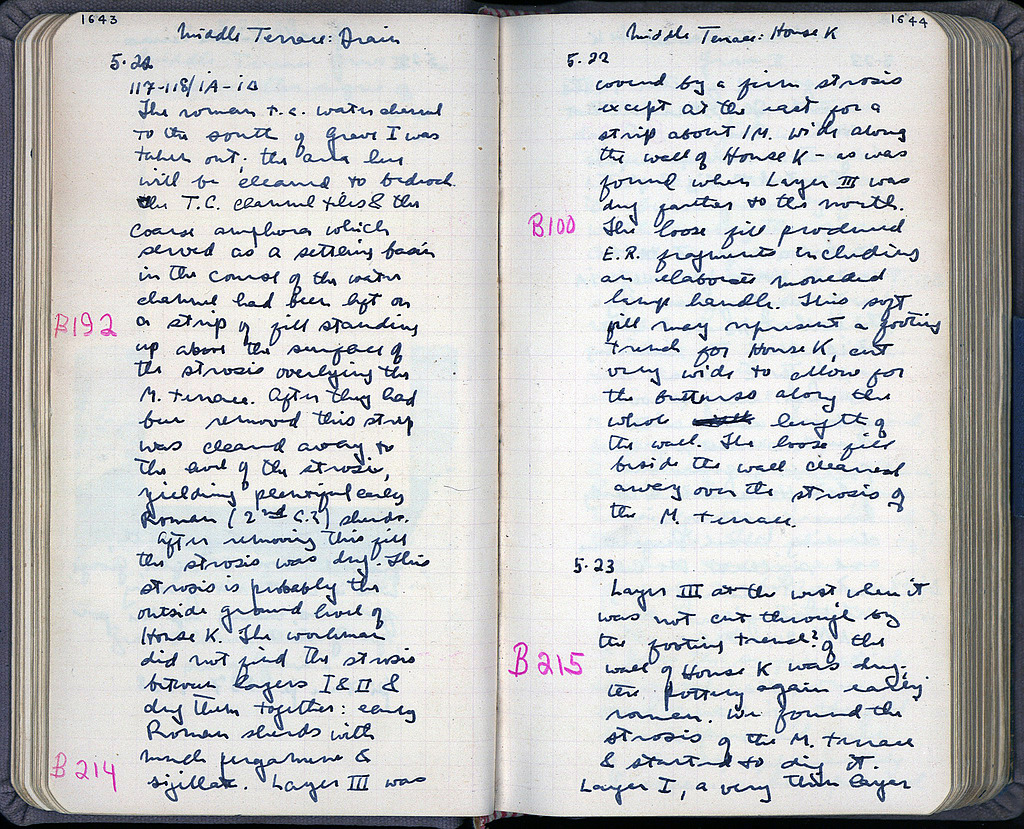 1643
Middle Terrace: Drain
5.22
117-118/1A-1B
The roman t.c. water channel
to the south of Grave I was
taken out; the area here
will be cleaned to bedrock.
the T.C. channel tiles & the
coarse amphora which
served as a settling basin
in the course of the water
channel had been left on
B192
a strip of fill standing
up above the surface of
the strosis overlying the
M. Terrace. After they had
been removed this strip
was cleared away to
the level of the strosis,
yielding plentiful early
Roman (2nd C.?) sherds.
After removing this fill
the strosis was dug. This
strosis is probably the
outside ground level of
House K. The workmen
did not find the strosis
between layers I & II &
dug them together: early
Roman sherds with
much pergamene &
B214
sigillata. Layer III was
1644
Middle Terrace: House K
5.22
covered by a firm strosis
except at the east for a
strip about 1 M. wide along
the wall of House K – as was
found when Layer III was
dug farther to the north.
B100
The loose fill produced
E.R. fragments including
an elaborate moulded
lamp handle. This soft
fill may represent a footing
trench for House K, cut
very wide to allow for
the buttress along the
whole length of
the wall. The loose fill
beside the wall cleaned
away over the strosis of
the M. Terrace.
5.23
Layer III at the west when it
was not cut through by
the footing trench? of the
B215
wall of House K was dug.
the pottery again early
roman. We found the
strosis of the M. Terrace
& started to dig it.
Layer I, a very thin layer